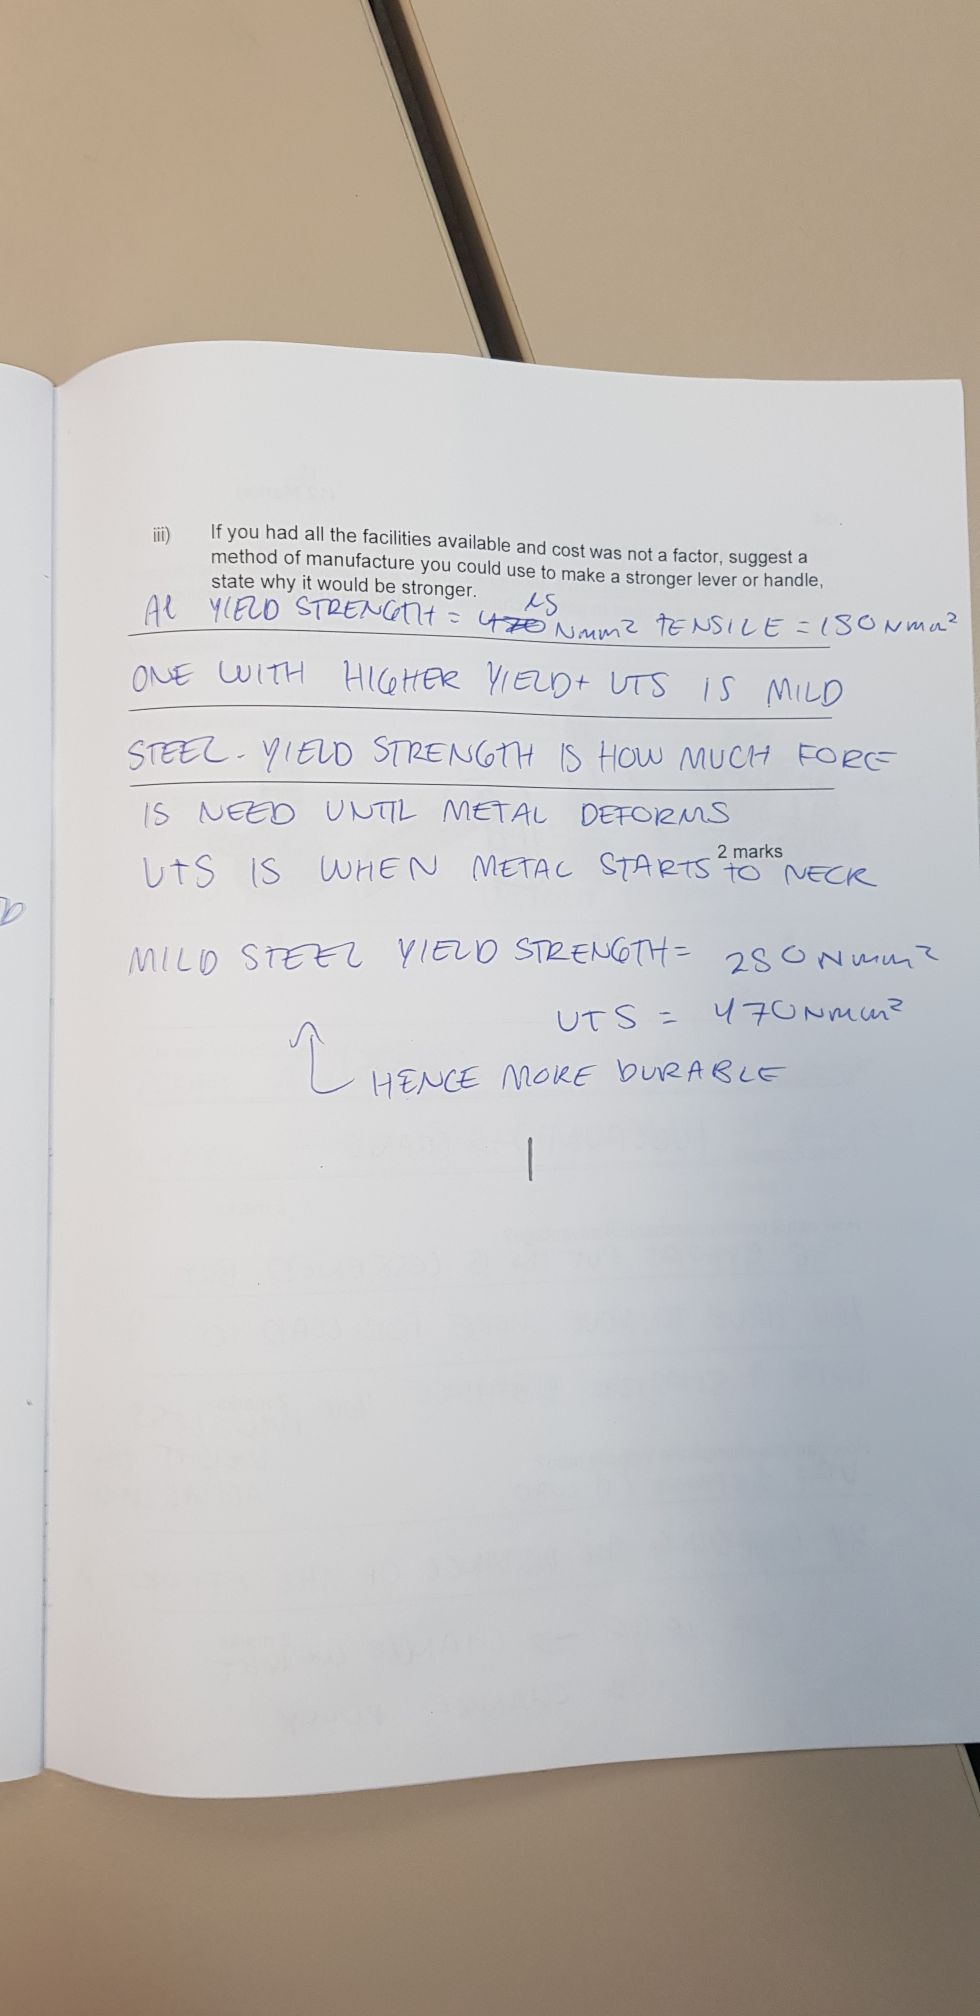 iii) If you had all the facilities available and cost was not a factor, suggest a
method of manufacture you could use to make a stronger lever or handle,
state why it would be stronger.
Al YIELD STRENGTH = Nmm² TENSILE = 150 Nmm²
ONE WITH HIGHER YIELD+ UTS IS MILD
STEEL - YIELD STRENGTH IS HOW MUCH FORCE
IS NEED UNTIL METAL DEFORMS
2 marks
UTS IS WHEN METAL STARTS TO NECK
MILD STEEL YIELD STRENGTH = 280 Nmm²
UTS = 470 Nmm²
HENCE MORE DURABLE